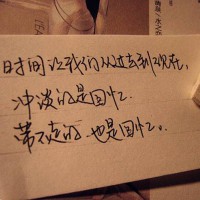 时间让我们从过去到现在,
冲淡的是回忆
带不走的 也是回忆。